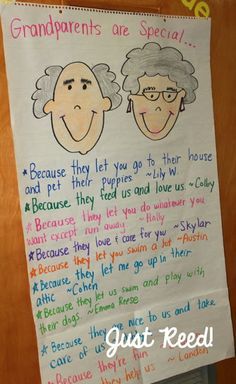 Grandparents are Special...
*Because they let you go to their house
and pet their puppies ~Lily W.
*Because they feed us and love us. ~Colby
*Because they let you do whatever you
want except run away ~Holly
*Because they love & care for you ~Skylar
*Because they let you swim a lot ~Austin
*Because they let me go up in their
attic ~Cohen
*Because they let us swim and play with
their dogs ~Emma Reese
*Because they're nice to us and take
care of us
*Because they're fun ~Landon
they help us
Just Reed!